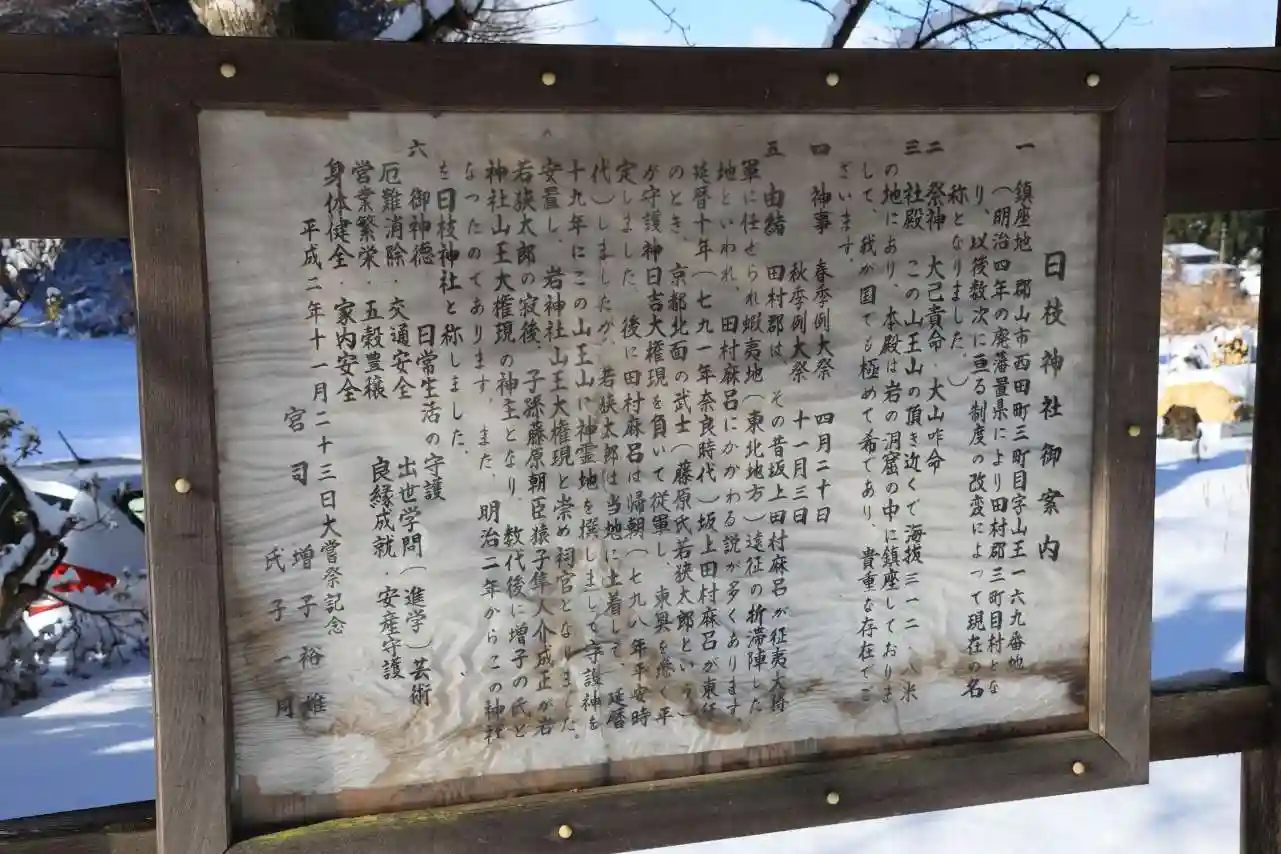 日枝神社御案内
一 鎮座地 郡山市西田町三町目字山王一六九番地
(明治四年の廃藩置県により田村郡三町目村とな
り、以後数次に亘る制度の改変によって現在の名
称となりました。)
二 祭神 大己貴命・大山咋命
三 社殿 この山王山の頂き近くで海抜三一二・八米
の地にあり、本殿は岩の洞窟の中に鎮座しておりま
して、我が国でも極めて希であり、貴重な存在でご
ざいます。
四 神事 春季例大祭 四月二十日
秋季例大祭 十一月三日
五 由緒 田村郡は、その昔坂上田村麻呂が征夷大将
軍に任せられ蝦夷地(東北地方)遠征の折滞陣した
地といわれ、田村麻呂にかかわる説が多くあります
延暦十年(七九一年奈良時代)坂上田村麻呂が東征
のとき、京都北面の武士(藤原氏若狭太郎という)
が守護神日吉大権現を負いて従軍し、東奥を悉く平
定しました。後に田村麻呂は帰朝(七九八年平安時
代)しましたが、若狭太郎は当地に土着して、延暦
十九年にこの山王山に神霊地を撰しまして守護神を
安置し、岩神社山王大権現と崇め祠官となりました。
若狭太郎の寂後、子孫藤原朝臣猿子隼人介成正が岩
神社山王大権現の神主となり、数代後に増子の氏と
なったのであります。また、明治二年からこの神社
を日枝神社と称しました。
六 御神徳 日常生活の守護
厄難消除・交通安全 出世学問(進学)芸術
営業繁栄・五穀豊穣 良縁成就・安産守護
身体健全・家内安全
平成二年十一月二十三日大嘗祭記念
宮司 増子裕雄
氏子一同